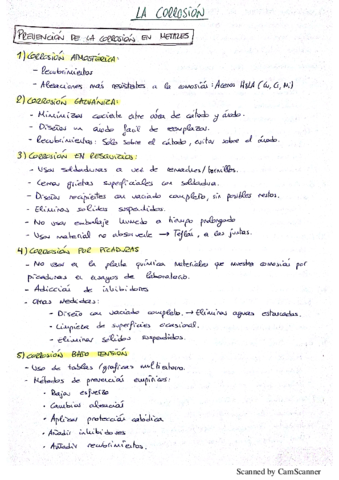 LA CORROSIÓN
PREVENCIÓN DE LA CORROSIÓN EN METALES
1) CORROSIÓN ATMOSFÉRICA:
- Recubrimientos
- Aleaciones más resistentes a la corrosión: Aceros HSLA (Cu, Cr, Ni)
2) CORROSIÓN GALVÁNICA:
- Minimizar cociente entre área de cátodo y ánodo.
- Diseñar un ánodo fácil de reemplazar.
- Recubrimientos: Solo sobre el cátodo, evitar sobre el ánodo.
3) CORROSIÓN EN RESQUICIOS:
- Usar soldaduras a vez de remaches/tornillos.
- Cerrar grietas superficiales con soldadura.
- Diseñar recipientes con vaciado completo, sin posibles restos.
- Eliminar sólidos suspendidos.
- No usar embalaje húmedo a tiempo prolongado
- Usar material no absorvente → Teflón, a las juntas.
4) CORROSIÓN POR PICADURAS
- No usar en la planta química materiales que muestran corrosión por
picaduras en ensayos de laboratorio.
- Adicción de inhibidores
- Otras medidas:
- Diseño con vaciado completo. → Eliminar aguas estancadas.
- Limpieza de superficies ocasional.
- eliminar sólidos suspendidos.
5) CORROSIÓN BAJO TENSIÓN
- Uso de tablas/gráficas
- Métodos de prevención empíricos:
· Bajar esfuerzo
· Cambiar aleación
· Aplicar protección catódica
· Añadir inhibidores
· Añadir recubrimientos.
Scanned by CamScanner